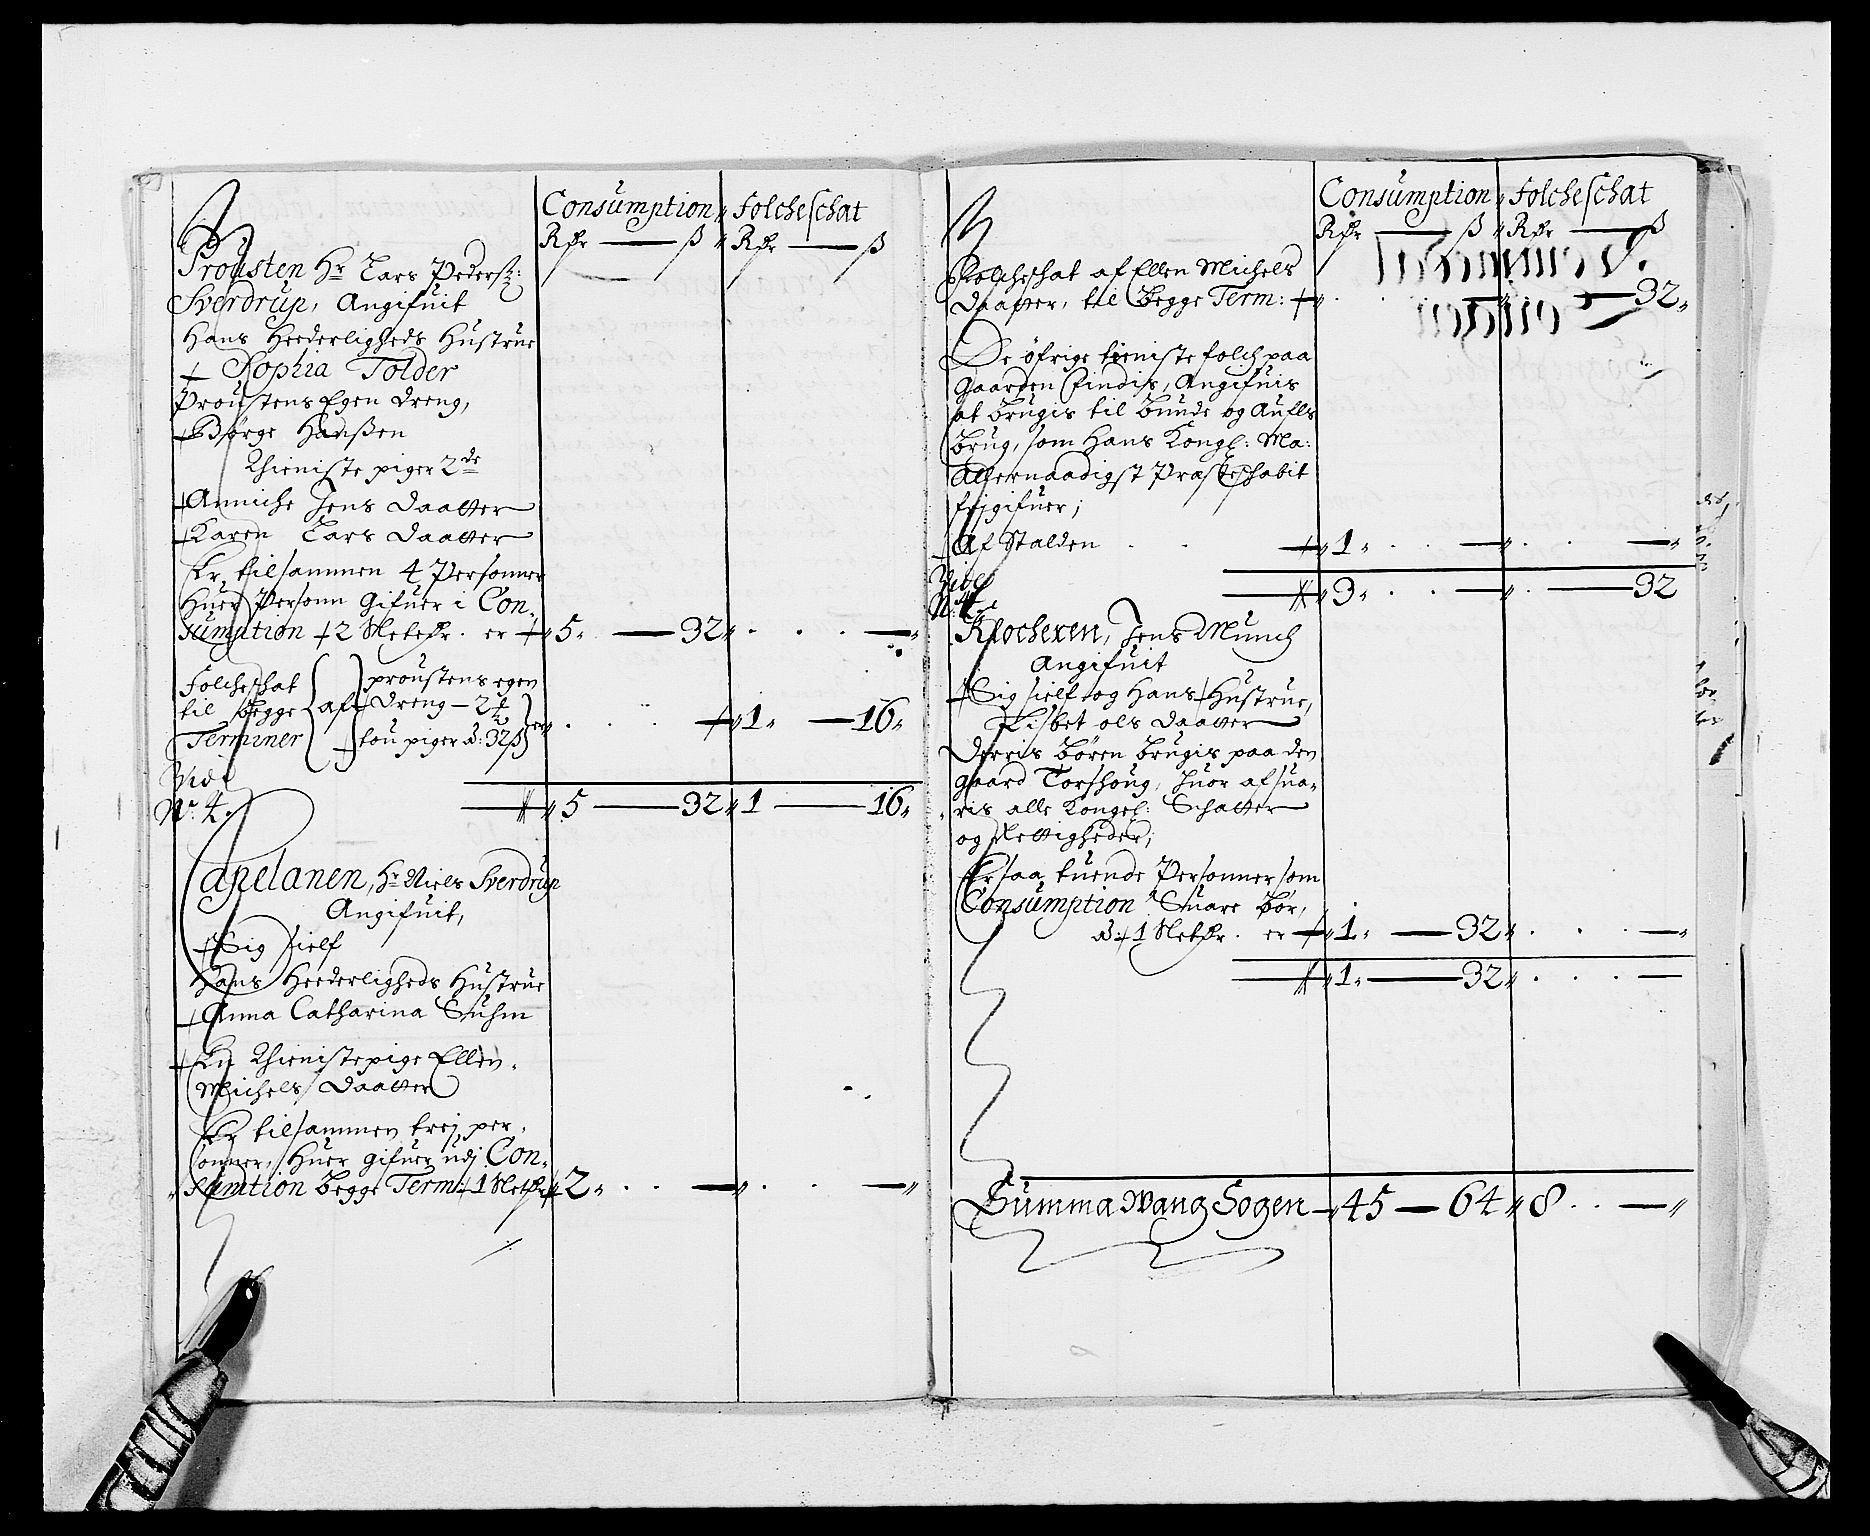 Consumption Folcheschat
Rdr ß Rdr ß
Prousten Hr Lars Pederss:
Sverdrup, Angifuit
Hans Heederligheds Hustrue
Sophia Tolder
Proustens Egen dreng,
Børge Hanßen
Thieniste piger 2de
Anniche Jens daatter
Karen Lars daatter
Er tilsammen 4 Personner
Huer Personn Gifuer i Con-
sumption 2 Sletedr. er 5 32
Folcheschat
til begge
Terminer
af
proustens egen
dreng - 2 ½
tou piger â: 32ß
er 1 16
Vidi
No. 4. 5 32 1 16
Capelanen, Hr Niels Sverdrup
Angifuit,
Sig sielf
Hans Heederligheds Hustrue
Anna Catharina Suhm
En Thienistepige Ellen
Michels daatter
Er tilsammen trej per-
sonner, Huer gifuer udj Con-
sumtion begge Term: 1 Sletdr 2
Consumption Folcheschat
Rdr ß Rdr ß
Folcheschat af Ellen Michels
daatter, til begge Term: 32
De øfrige tieniste folch paa
Gaarden findis, Angifuis
at brugis til bunde og Aufls
brug, som Hans Kongl: Ma:
Allernaadigst Præsteschabit
frjgifuer;
Af Stalden 1
Vidi
3 32
Klocheren, Jens Munch
Angifuit
Sig sielf og Hans Hustrue,
Lisbet ols daatter
Derris børen brugis paa den
gaard Torshoug, huor af sua-
ris alle Kongel: Schatter
og Rettigheder;
Er saa tuende Personner som
Consumption Suare bør,
â: 1 Sletdr. er 1 32
1 32
Summa Wang Sogen 45 64 8